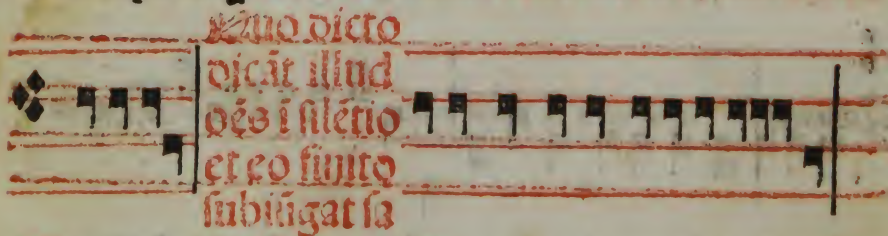 Quo dicto
dicāt illud
oēs ī silētio
et eo finito
subiūgat sa